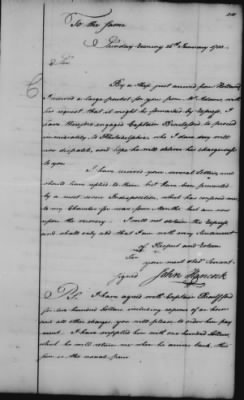 To the same
Sunday Evening 26th January 1783.
Sir
By a Ship just arrived from Holland
I received a large packet for you from Mr Adams with
his request that it might be forwarded by Express, I
have therefore engaged Captain Bradford to proceed
immediately to Philadelphia, who I have
now dispatch, and hope he will deliver his charge safe
to you.
I have received your several Letters, and
should have replied to them, but have been prevented
by a most severe Indisposition, which has confined me
to my Chamber for near two Months but am now
upon the recovery. I will not detain the Express
and shall only add that I am with every Sentiment
of Respect and Esteem
Your most obedt Servant.
Signed John Hancock
PS. I have agreed with Captain Bradford
for two hundred Dollars including expence of an horse
and all other charges, you will please to order him pay
ment. I have supplied him with one hundred Dollars
which he will return me when he arrives back this